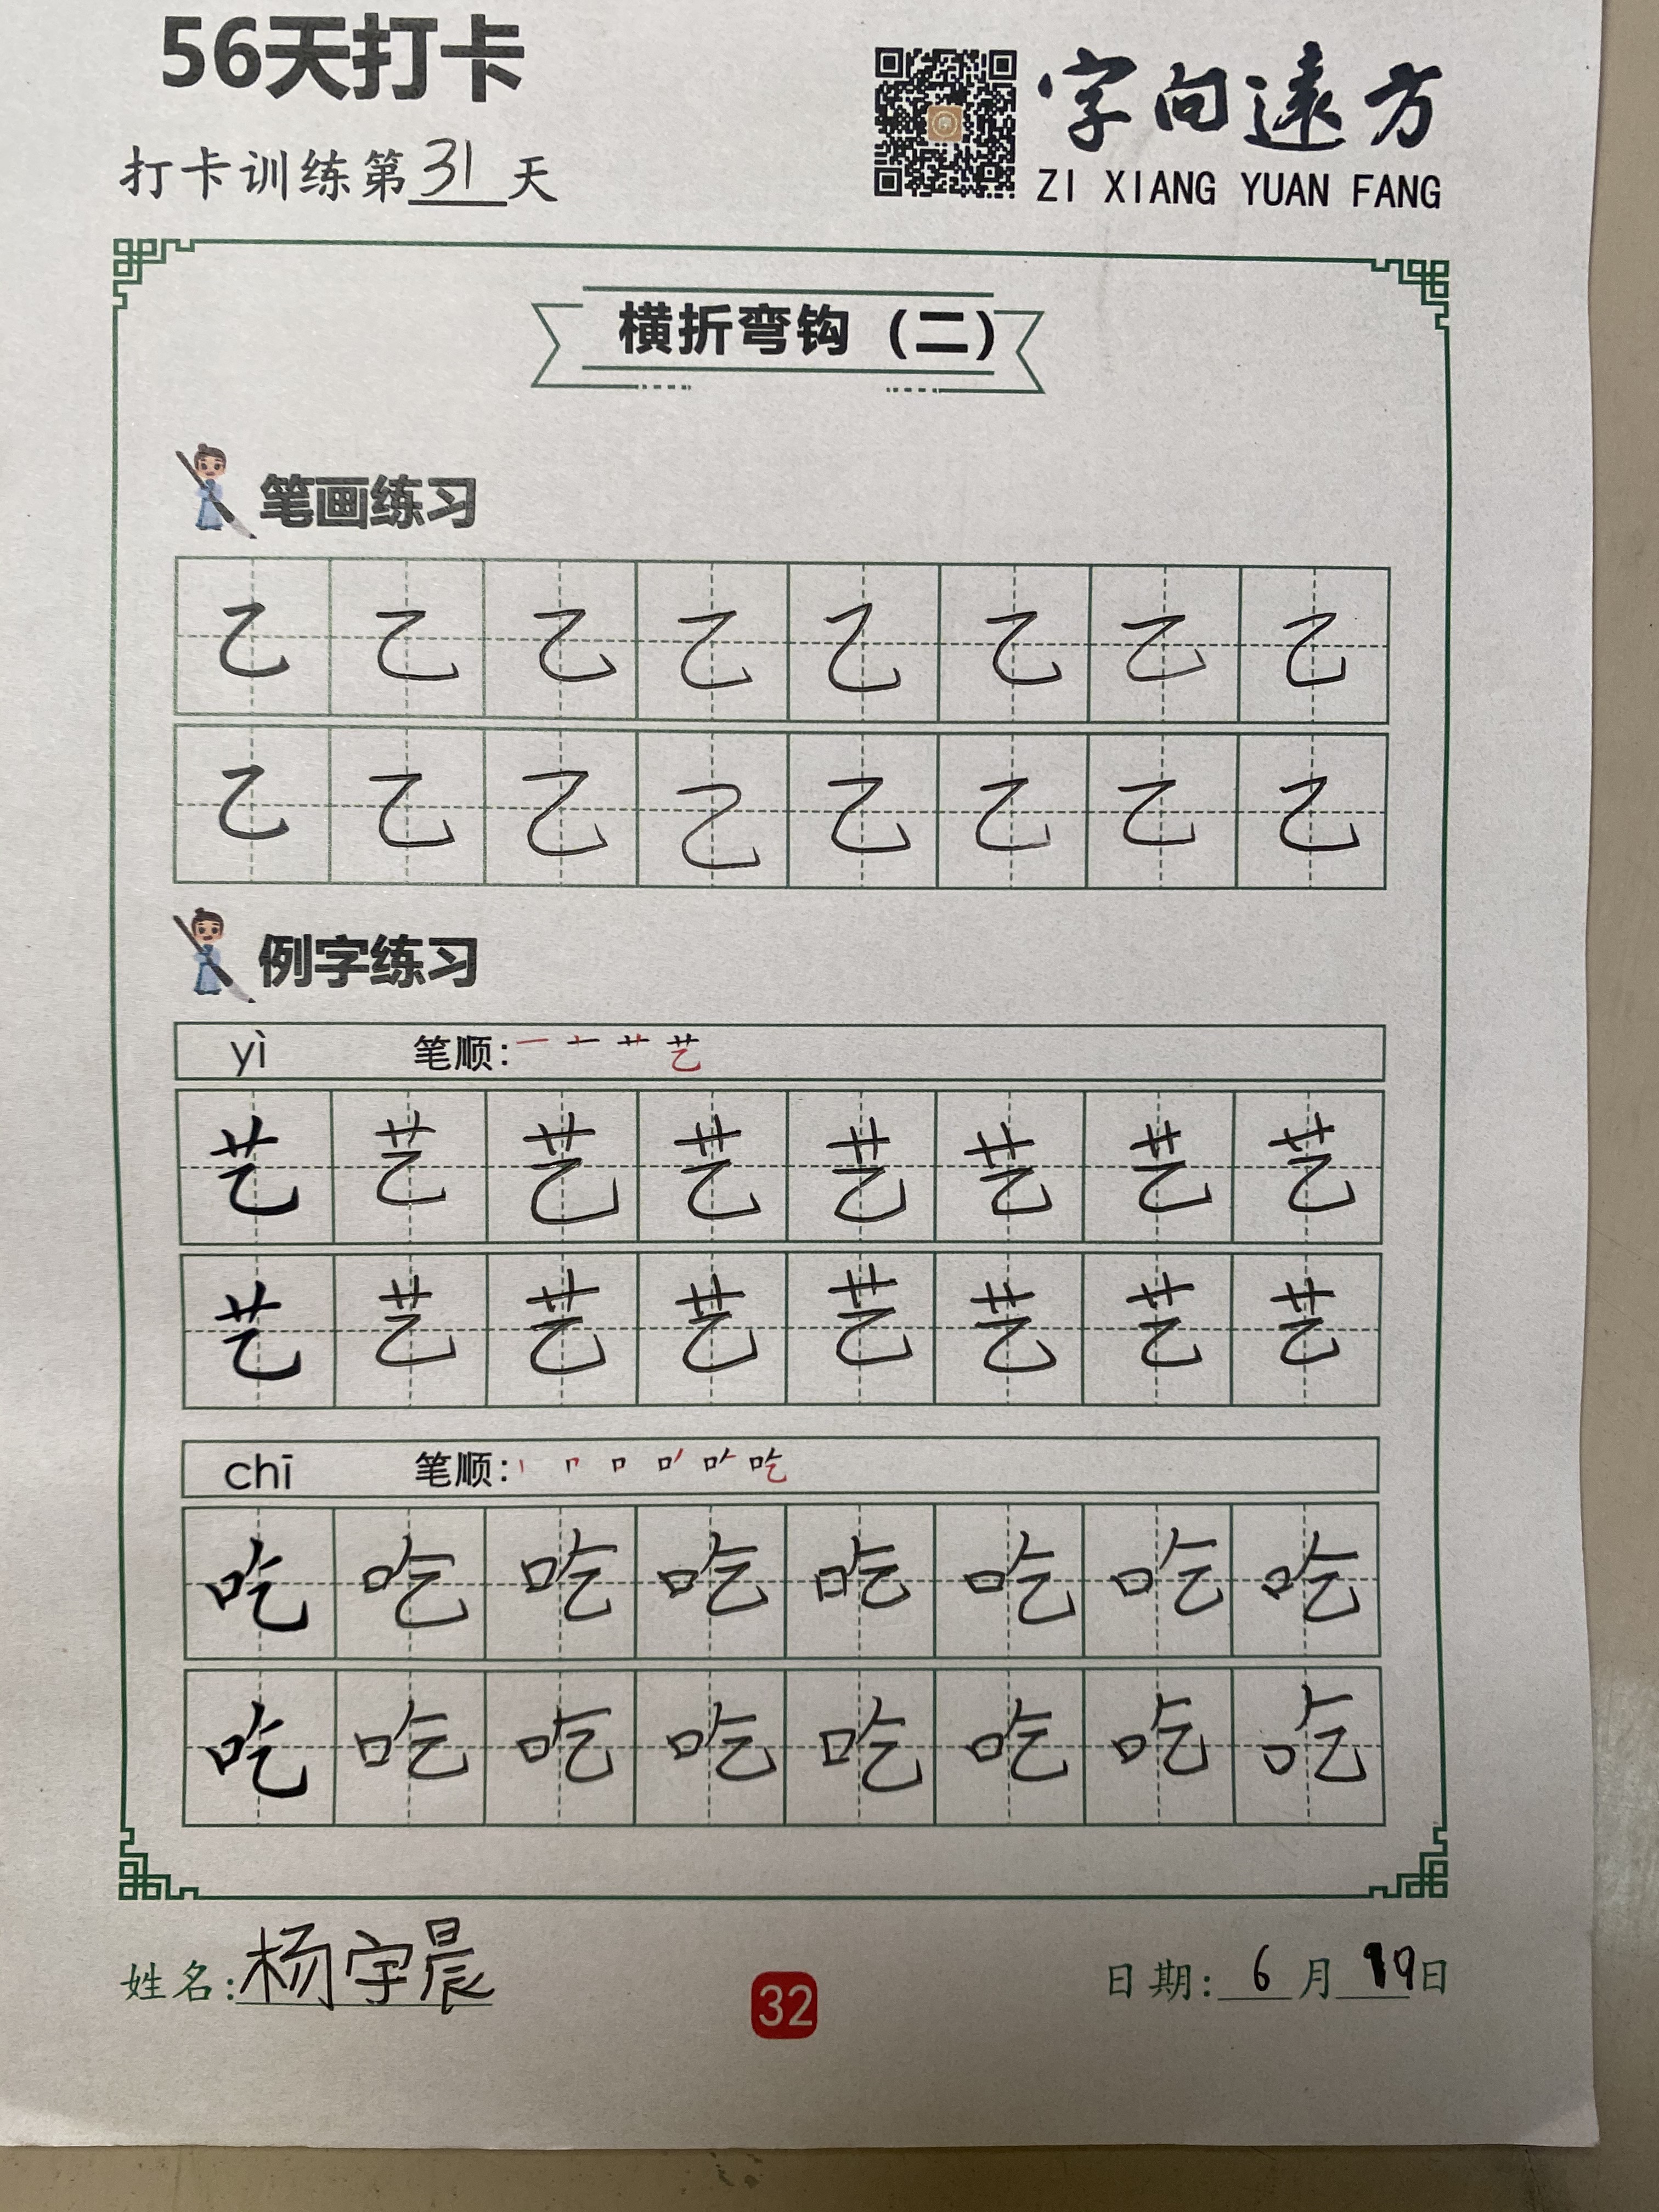 56天打卡
字向遠方
打卡训练第31天
ZI XIANG YUAN FANG
横折弯钩（二）
笔画练习
乙乙乙乙乙乙乙乙
乙乙乙乙乙乙乙乙
例字练习
yì 笔顺: 一 十 艹 艺
艺艺艺艺艺艺艺艺
艺艺艺艺艺艺艺艺
chī 笔顺: 丨 𠃍 口 吃
吃吃吃吃吃吃吃吃
吃吃吃吃吃吃吃吃
姓名:杨宇晨
日期: 6 月 19 日
32